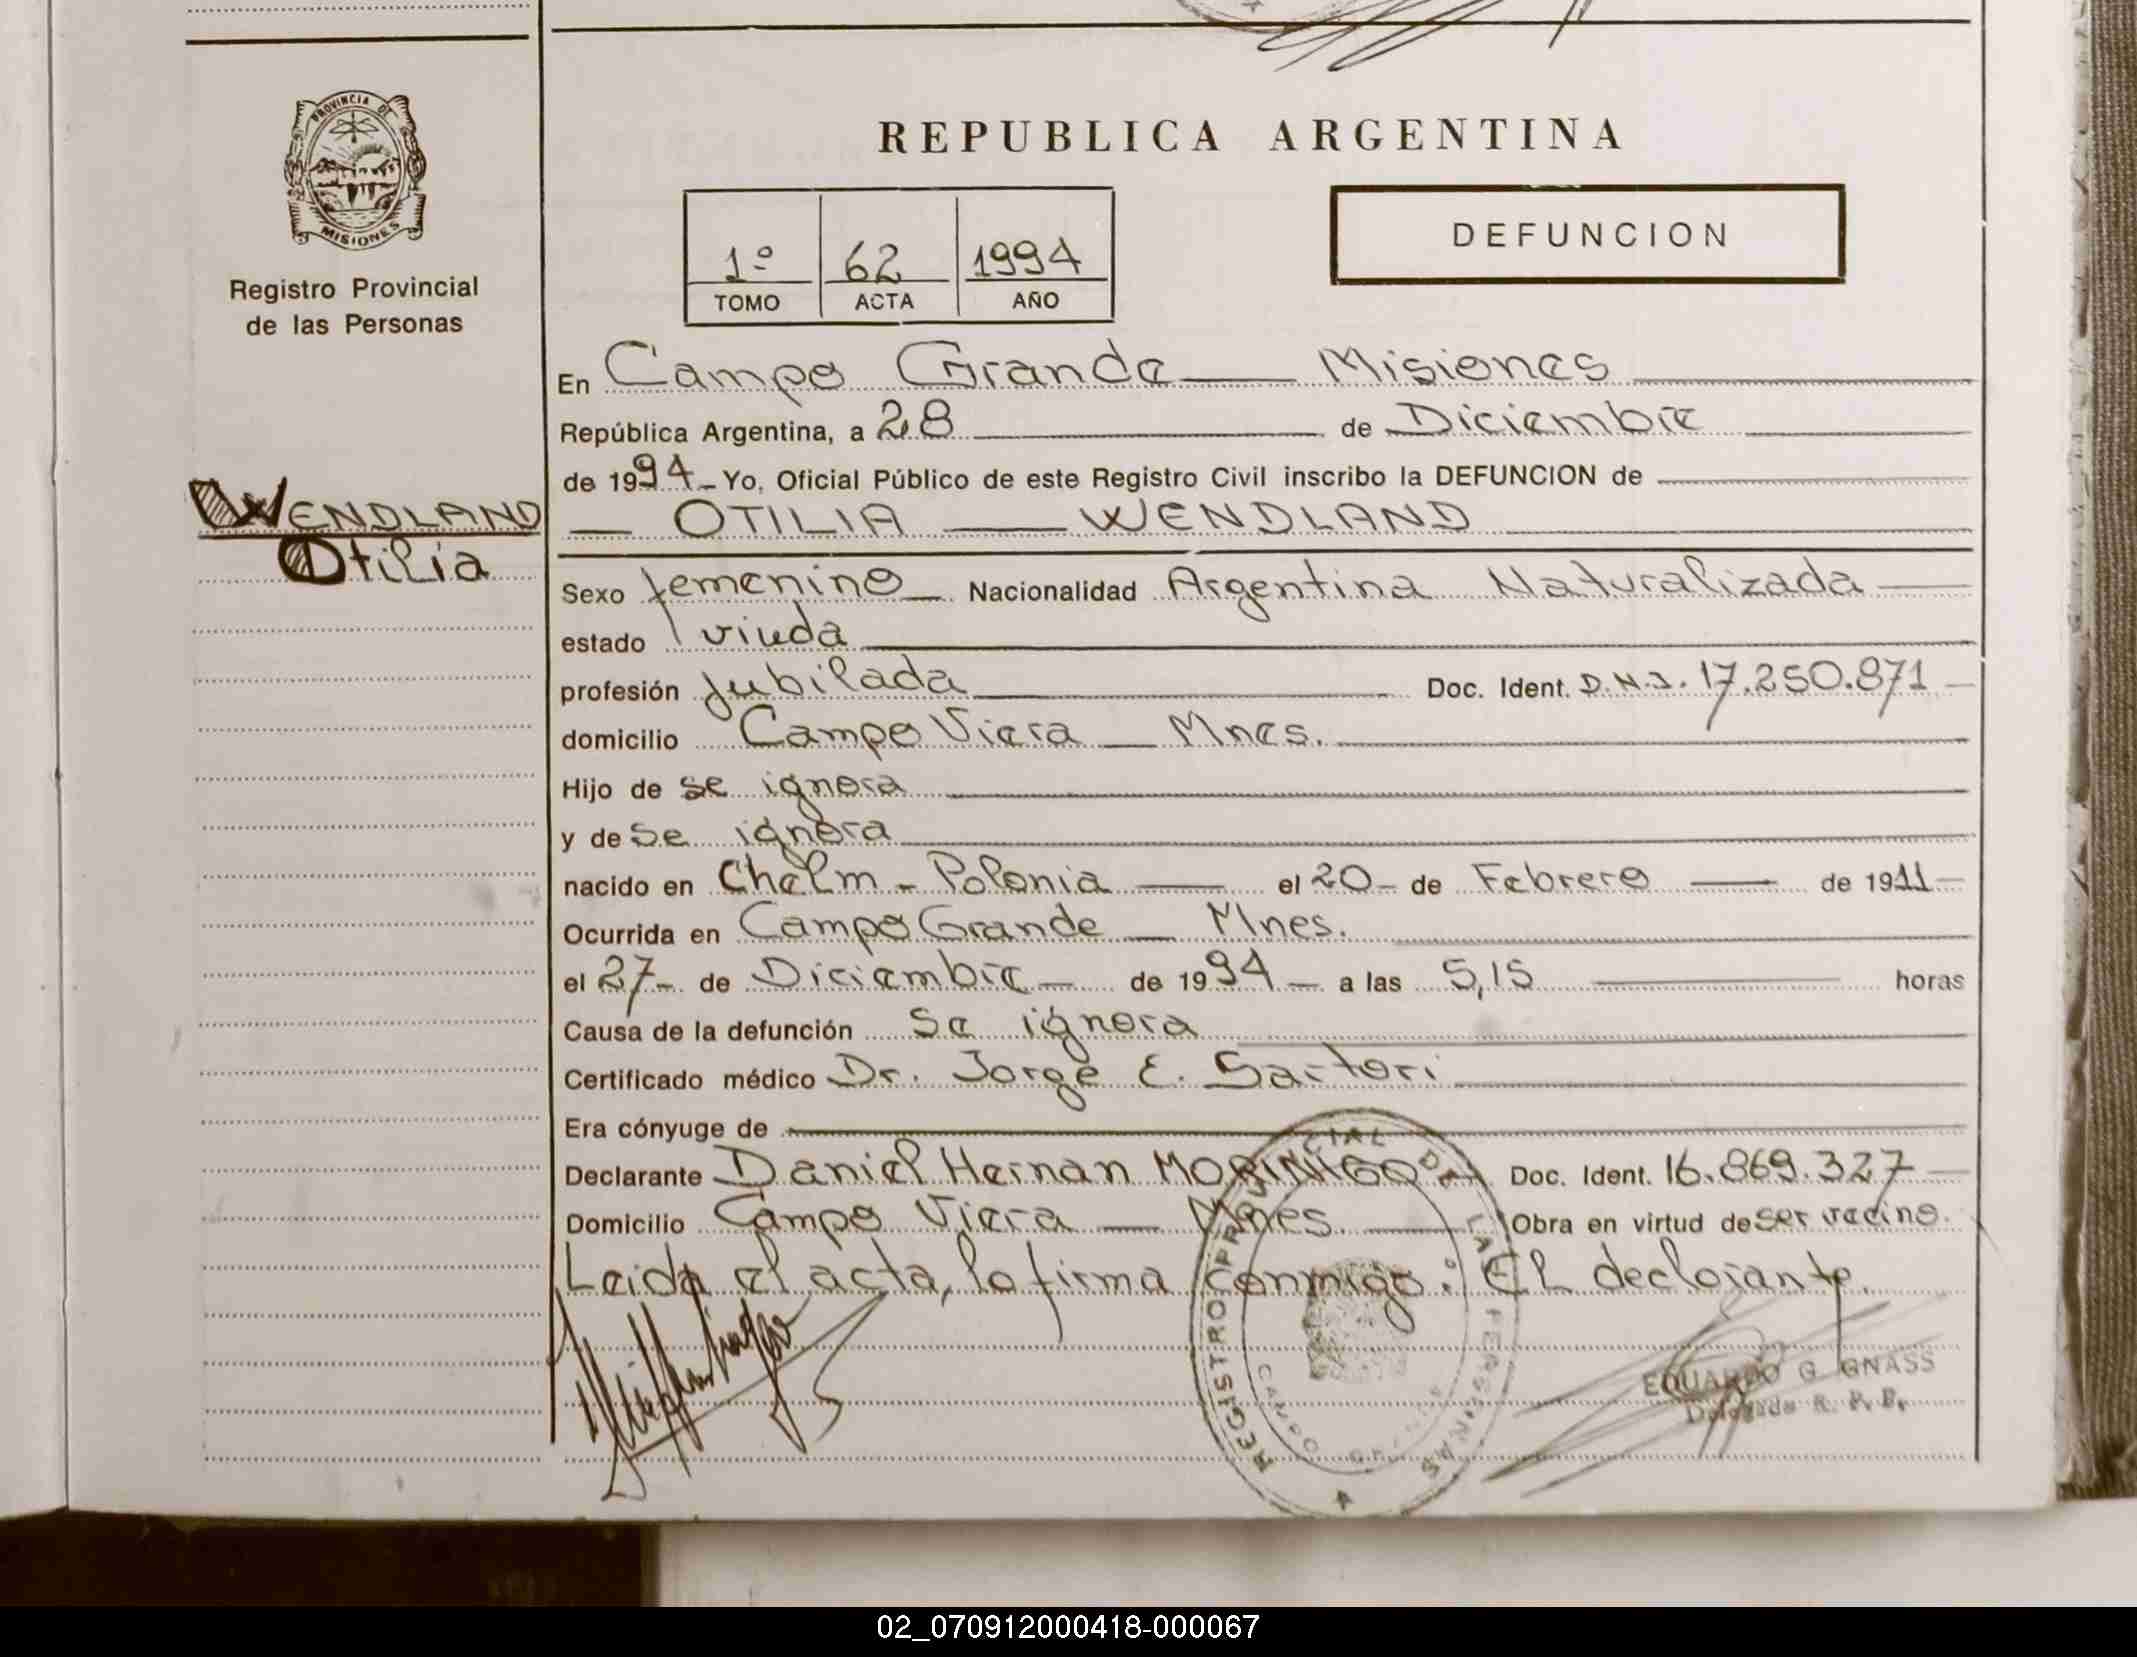 PROVINCIA DE
MISIONES
Registro Provincial
de las Personas
WENDLAND
Otilia
REPUBLICA ARGENTINA
1º 62 1994
TOMO ACTA AÑO
DEFUNCION
En Campo Grande Misiones
República Argentina, a 28 de Diciembre
de 1994 - Yo, Oficial Público de este Registro Civil inscribo la DEFUNCION de
OTILIA WENDLAND
Sexo femenino Nacionalidad Argentina Naturalizada
estado viuda
profesión jubilada Doc. Ident. D.N.I. 17.250.871
domicilio Campo Viera - Mnes.
Hijo de se ignora
y de se ignora
nacido en Chelm - Polonia el 20 - de Febrero de 1911
Ocurrida en Campo Grande - Mnes.
el 27 - de Diciembre de 1994 - a las 5,15 horas
Causa de la defunción se ignora
Certificado médico Dr. Jorge E. Sartori
Era cónyuge de
Declarante Daniel Hernan MORINIGO Doc. Ident. 16.869.327
Domicilio Campo Viera - Mnes. Obra en virtud de ser vecino.
Leida el acta, lo firma conmigo: El declarante.
REGISTRO PROVINCIAL DE LAS PERSONAS
CAMPO GRANDE
EDUARDO G. GNASS
Delegado R. P. P.
02_070912000418-000067